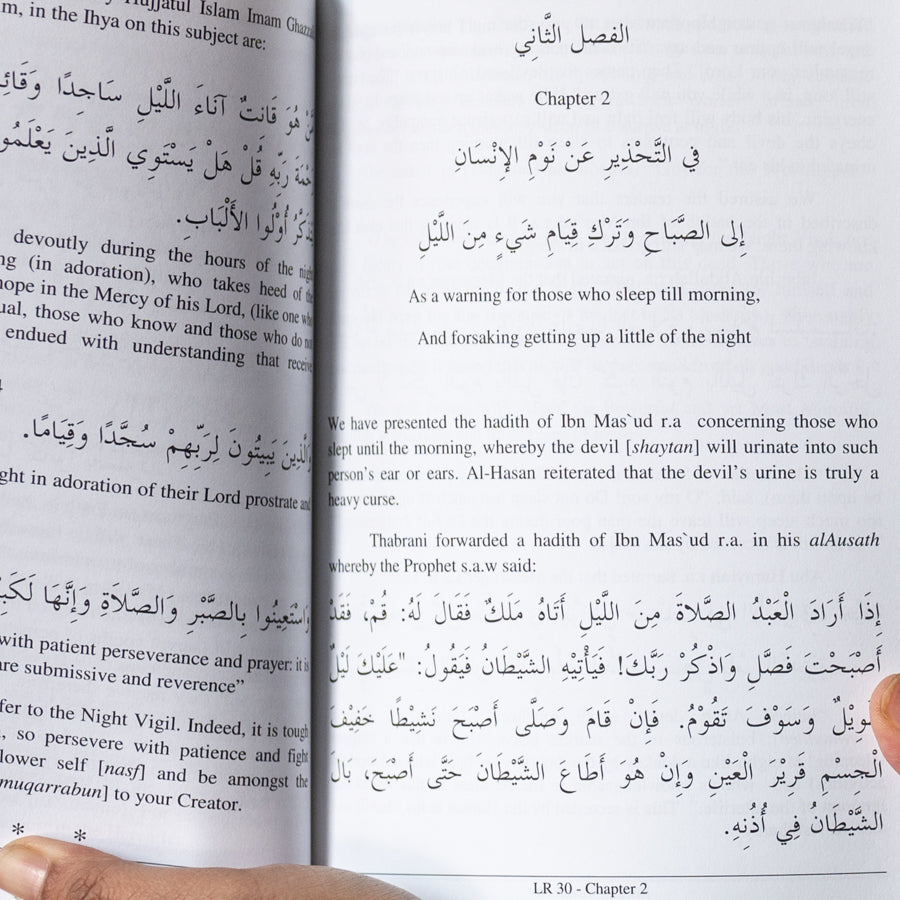 Hujjatul Islam Imam
m, in the Ihya on this subject are:
هُوَ قَانِتٌ آنَاءَ اللَّيْلِ سَاجِدًا
رَبِّهِ قُلْ هَلْ يَسْتَوِي الَّذِينَ
أُوْلُوا الأَلْبَابِ.
devoutly during the hours of the night
ng (in adoration), who takes heed of the
hope in the Mercy of his Lord, (like one who
ual, those who know and those who do not
endued with understanding that receive
يَبِيتُونَ لِرَبِّهِمْ سُجَّدًا وَقِيَامًا.
ght in adoration of their Lord prostrate and
بِالصَّبْرِ وَالصَّلاَةِ وَإِنَّهَا
with patient perseverance and prayer: it is
are submissive and reverence”
fer to the Night Vigil. Indeed, it is tough
, so persevere with patience and fight
lower self [nasf] and be amongst the
muqarrabun] to your Creator.
* *
الفصل الثَّانِي
Chapter 2
فِي التَّحْذِيرِ عَنْ نَوْمِ الإِنْسَانِ
إِلى الصَّبَاحِ وَتَرْكِ قِيَامِ شَيءٍ مِنَ اللَّيْلِ
As a warning for those who sleep till morning,
And forsaking getting up a little of the night
We have presented the hadith of Ibn Mas`ud r.a concerning those who
slept until the morning, whereby the devil [shaytan] will urinate into such
person’s ear or ears. Al-Hasan reiterated that the devil’s urine is truly a
heavy curse.
Thabrani forwarded a hadith of Ibn Mas`ud r.a. in his alAusath
whereby the Prophet s.a.w said:
إِذَا أَرَادَ الْعَبْدُ الصَّلاةَ مِن اللَّيْلِ أَتَاهُ مَلَكٌ فَقَالَ لَهُ: قُمْ، فَقَدْ
أَصْبَحْتَ فَصَلِّ وَاذْكُرْ رَبَّكَ! فَيَأْتِيْهِ الشَّيْطَانُ فَيَقُولُ: "عَلَيْكَ لَيْلٌ
طَوِيْلٌ وَسَوْفَ تَقُوْمُ. فَإِنْ قَامَ وَصَلَّى أَصْبَحَ نَشِيْطًا خَفِيْفَ
الْجِسْمِ قَرِيْرَ الْعَيْنِ وَإِنْ هُوَ أَطَاعَ الشَّيْطَانَ حَتَّى أَصْبَحَ، بَالَ
الشَّيْطَانُ فِي أُذُنِهِ.
LR 30 - Chapter 2